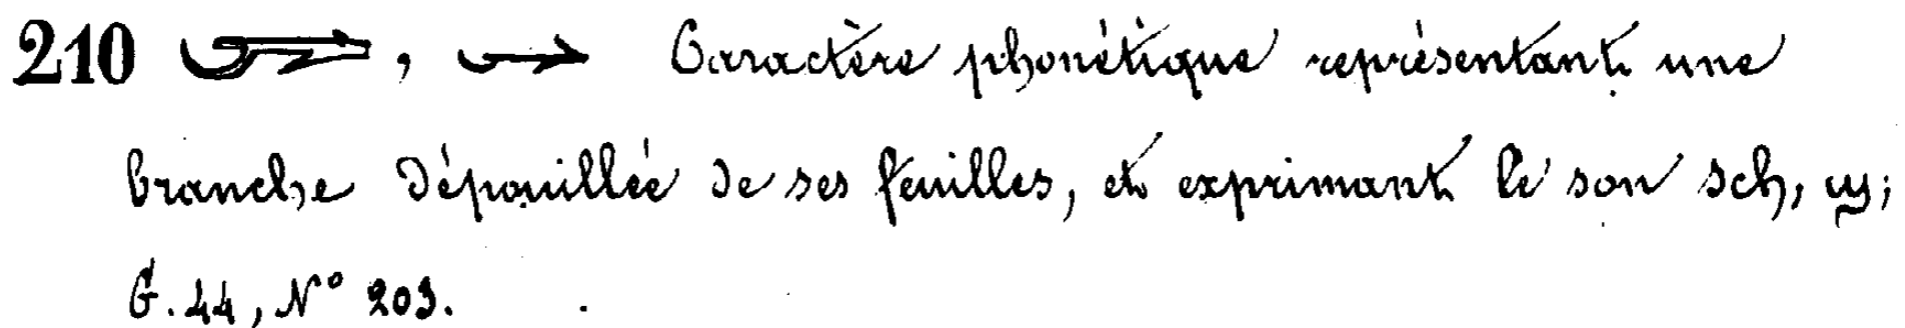 210 , Caractère phonétique représentant une
branche dépouillée de ses feuilles, et exprimant le son sch, ϣ;
G. 44, N° 203.